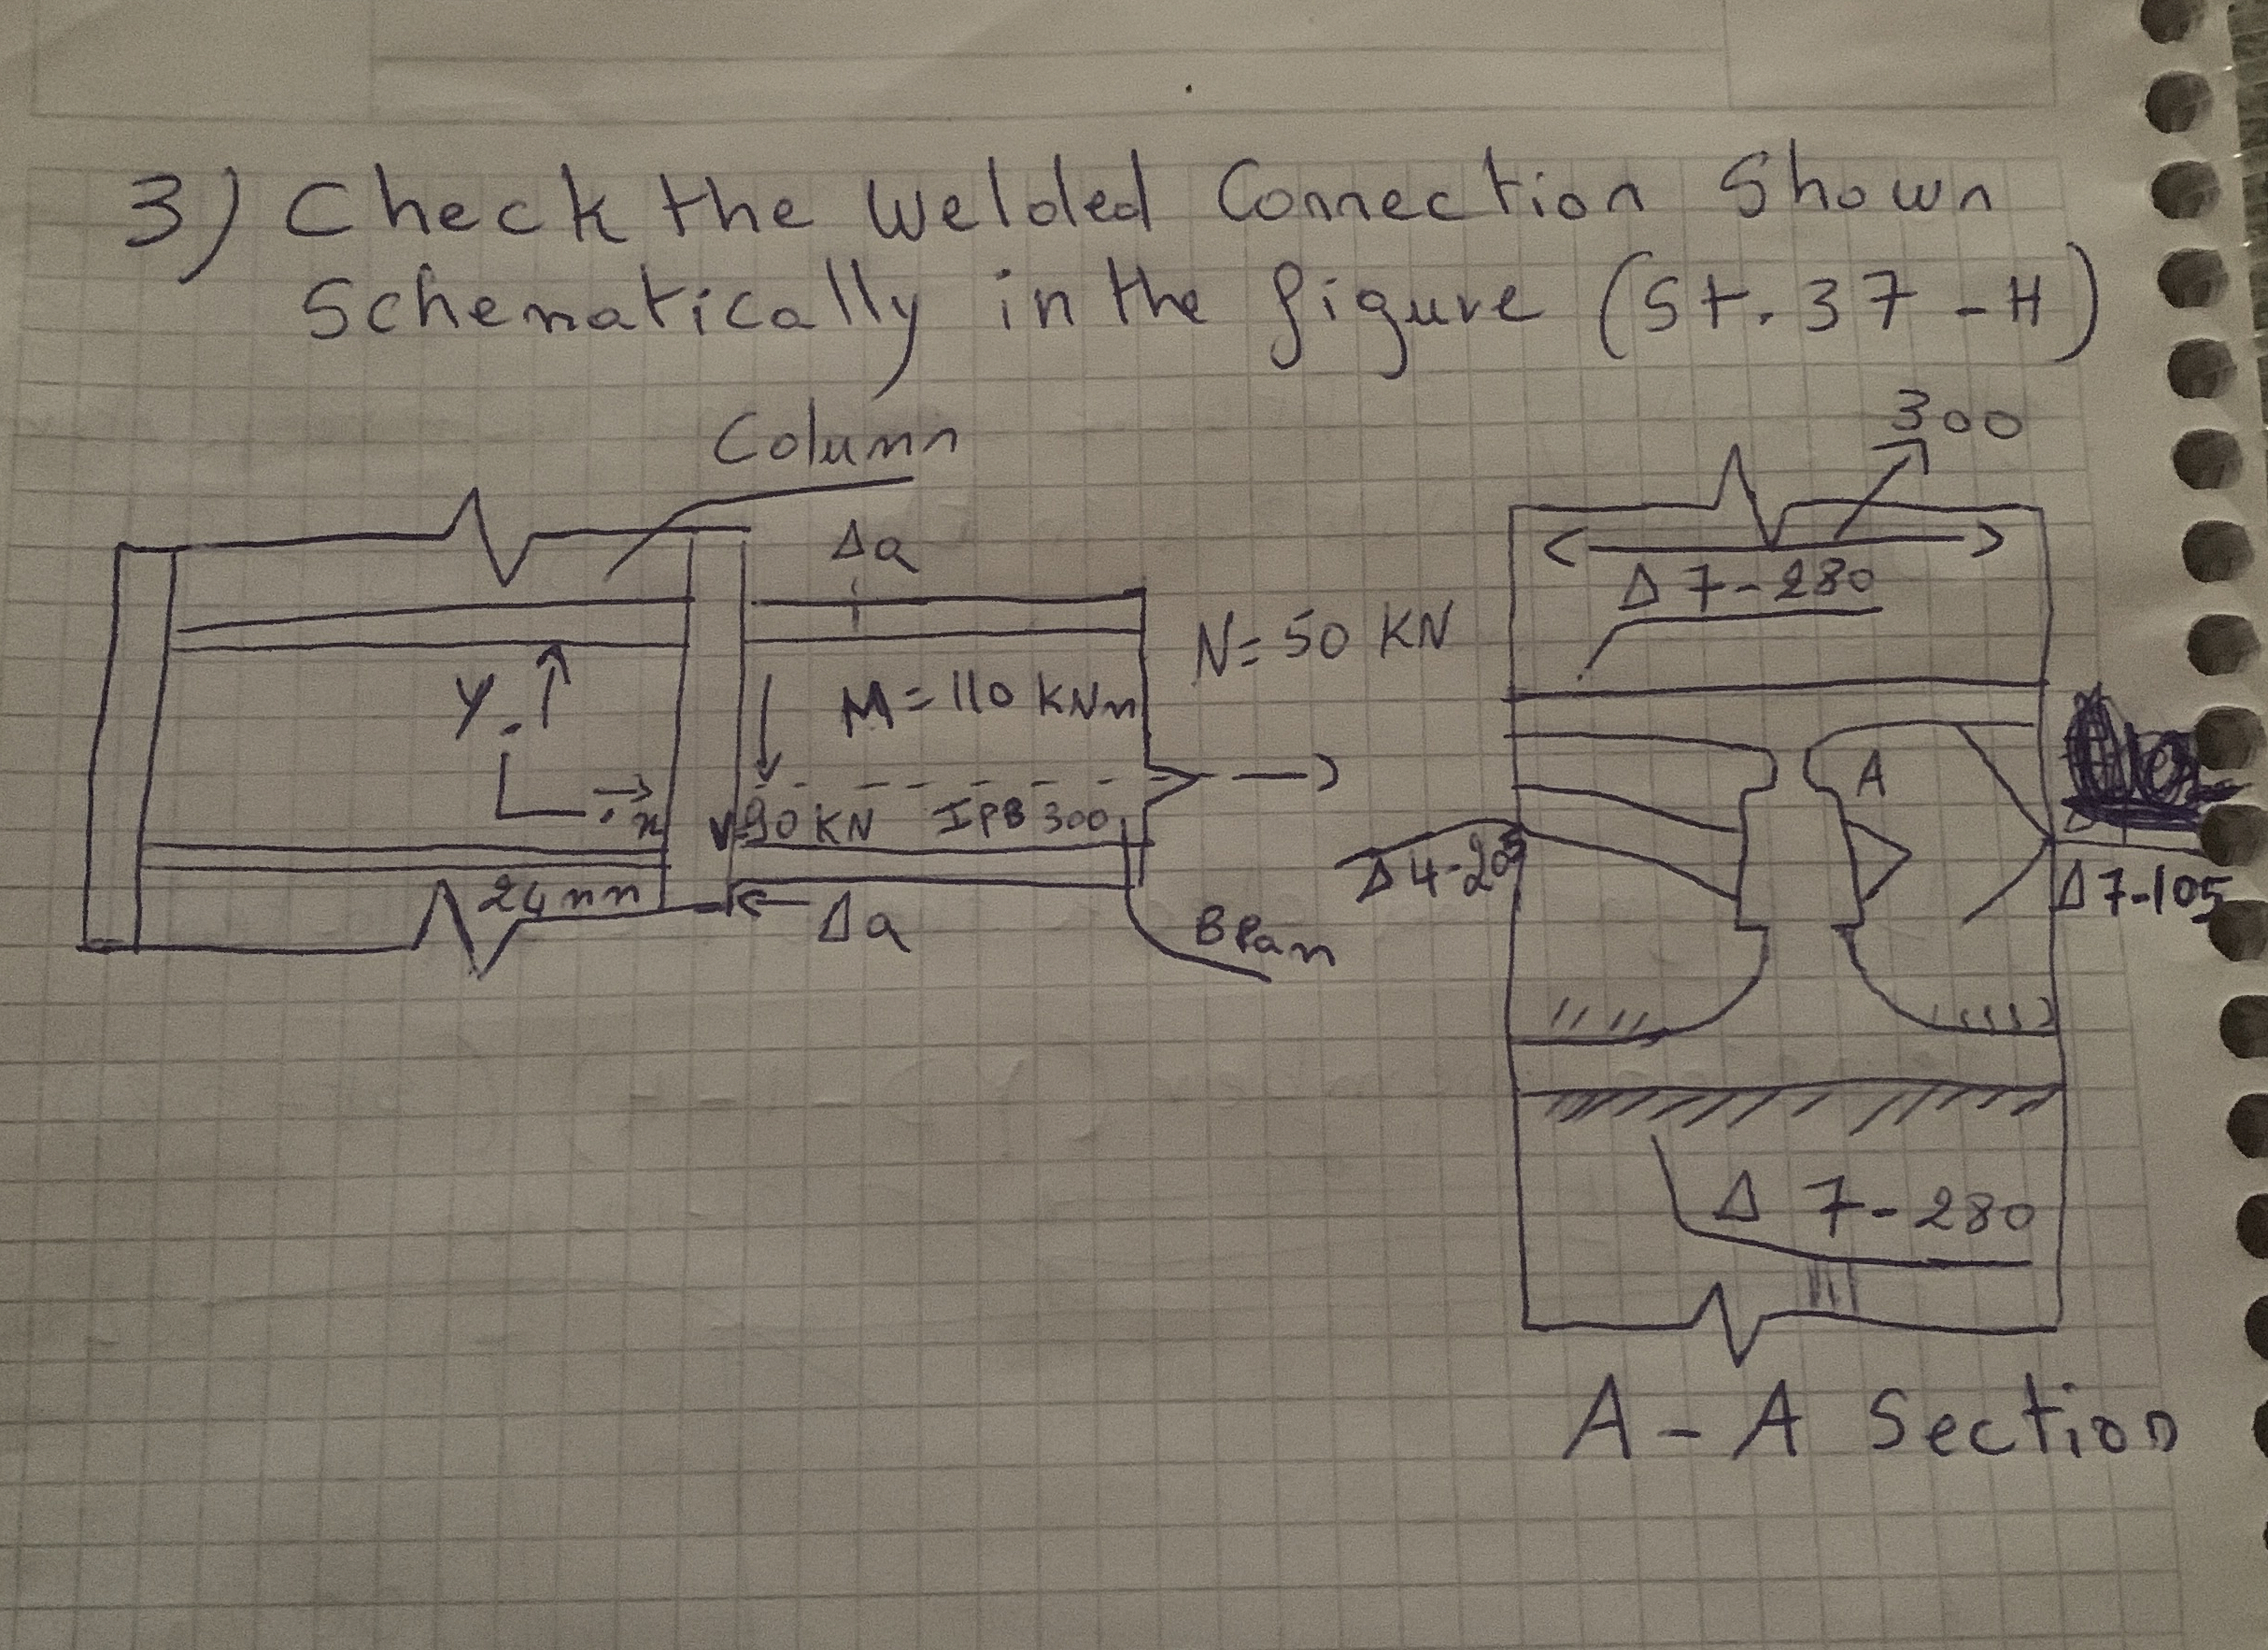 3) Check the welded Connection Shown
Schematically in the figure (St. 37 - H)
Column
300
Δa
Δ 7-280
N= 50 KN
y
M = 110 KNm
A
x
V=90 KN IPB 300
Δ 4-205
Δ 7-105
24 mm
Δa
Beam
Δ 7-280
A - A Section